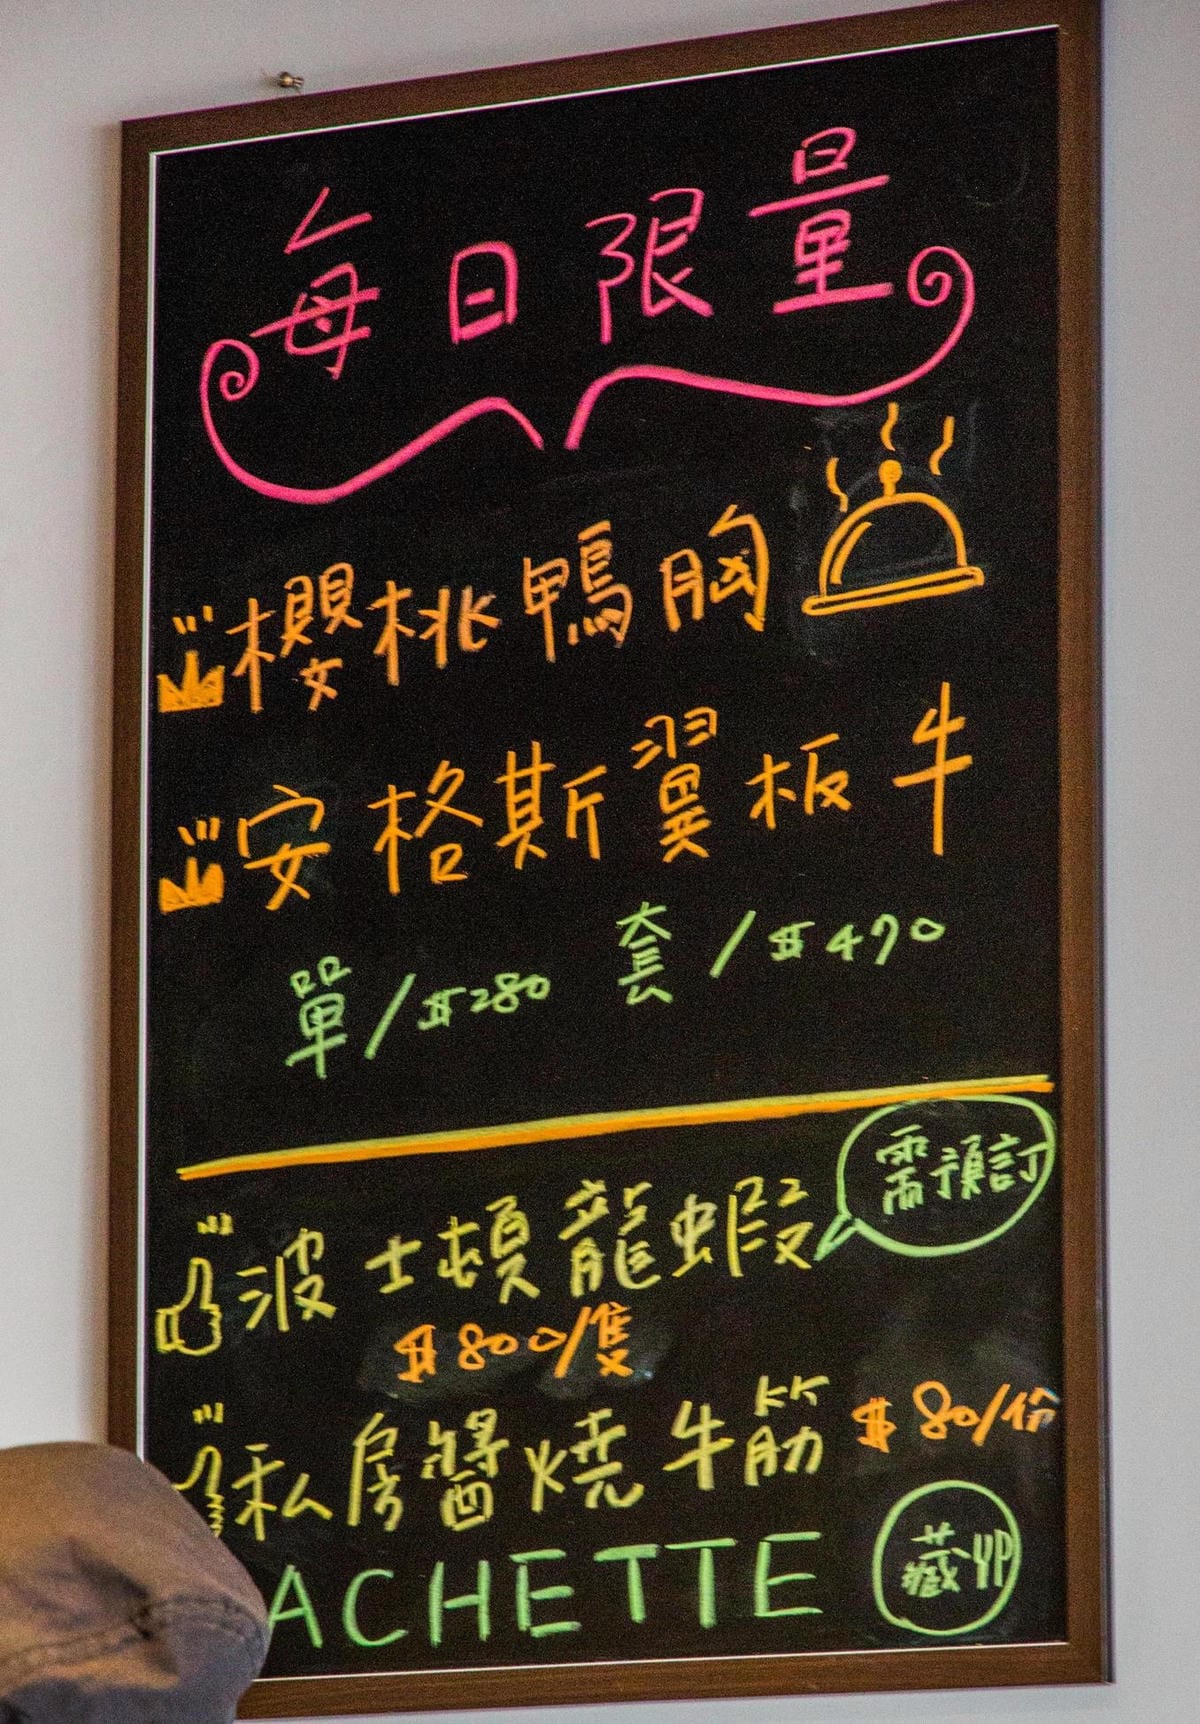 每日限量
櫻桃鴨胸
安格斯翼板牛
單/$280 套/$470
需預訂
波士頓龍蝦
$800/隻
私房醬燒牛筋 $80/份
ACHETTE
藏